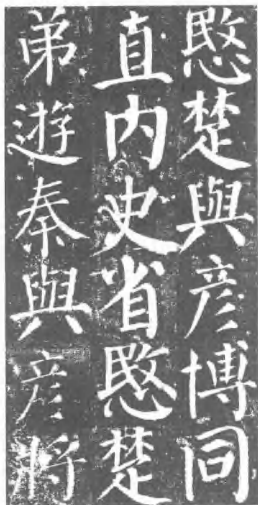 愍楚與彦博同
直内史省愍楚
弟遊秦與彦將